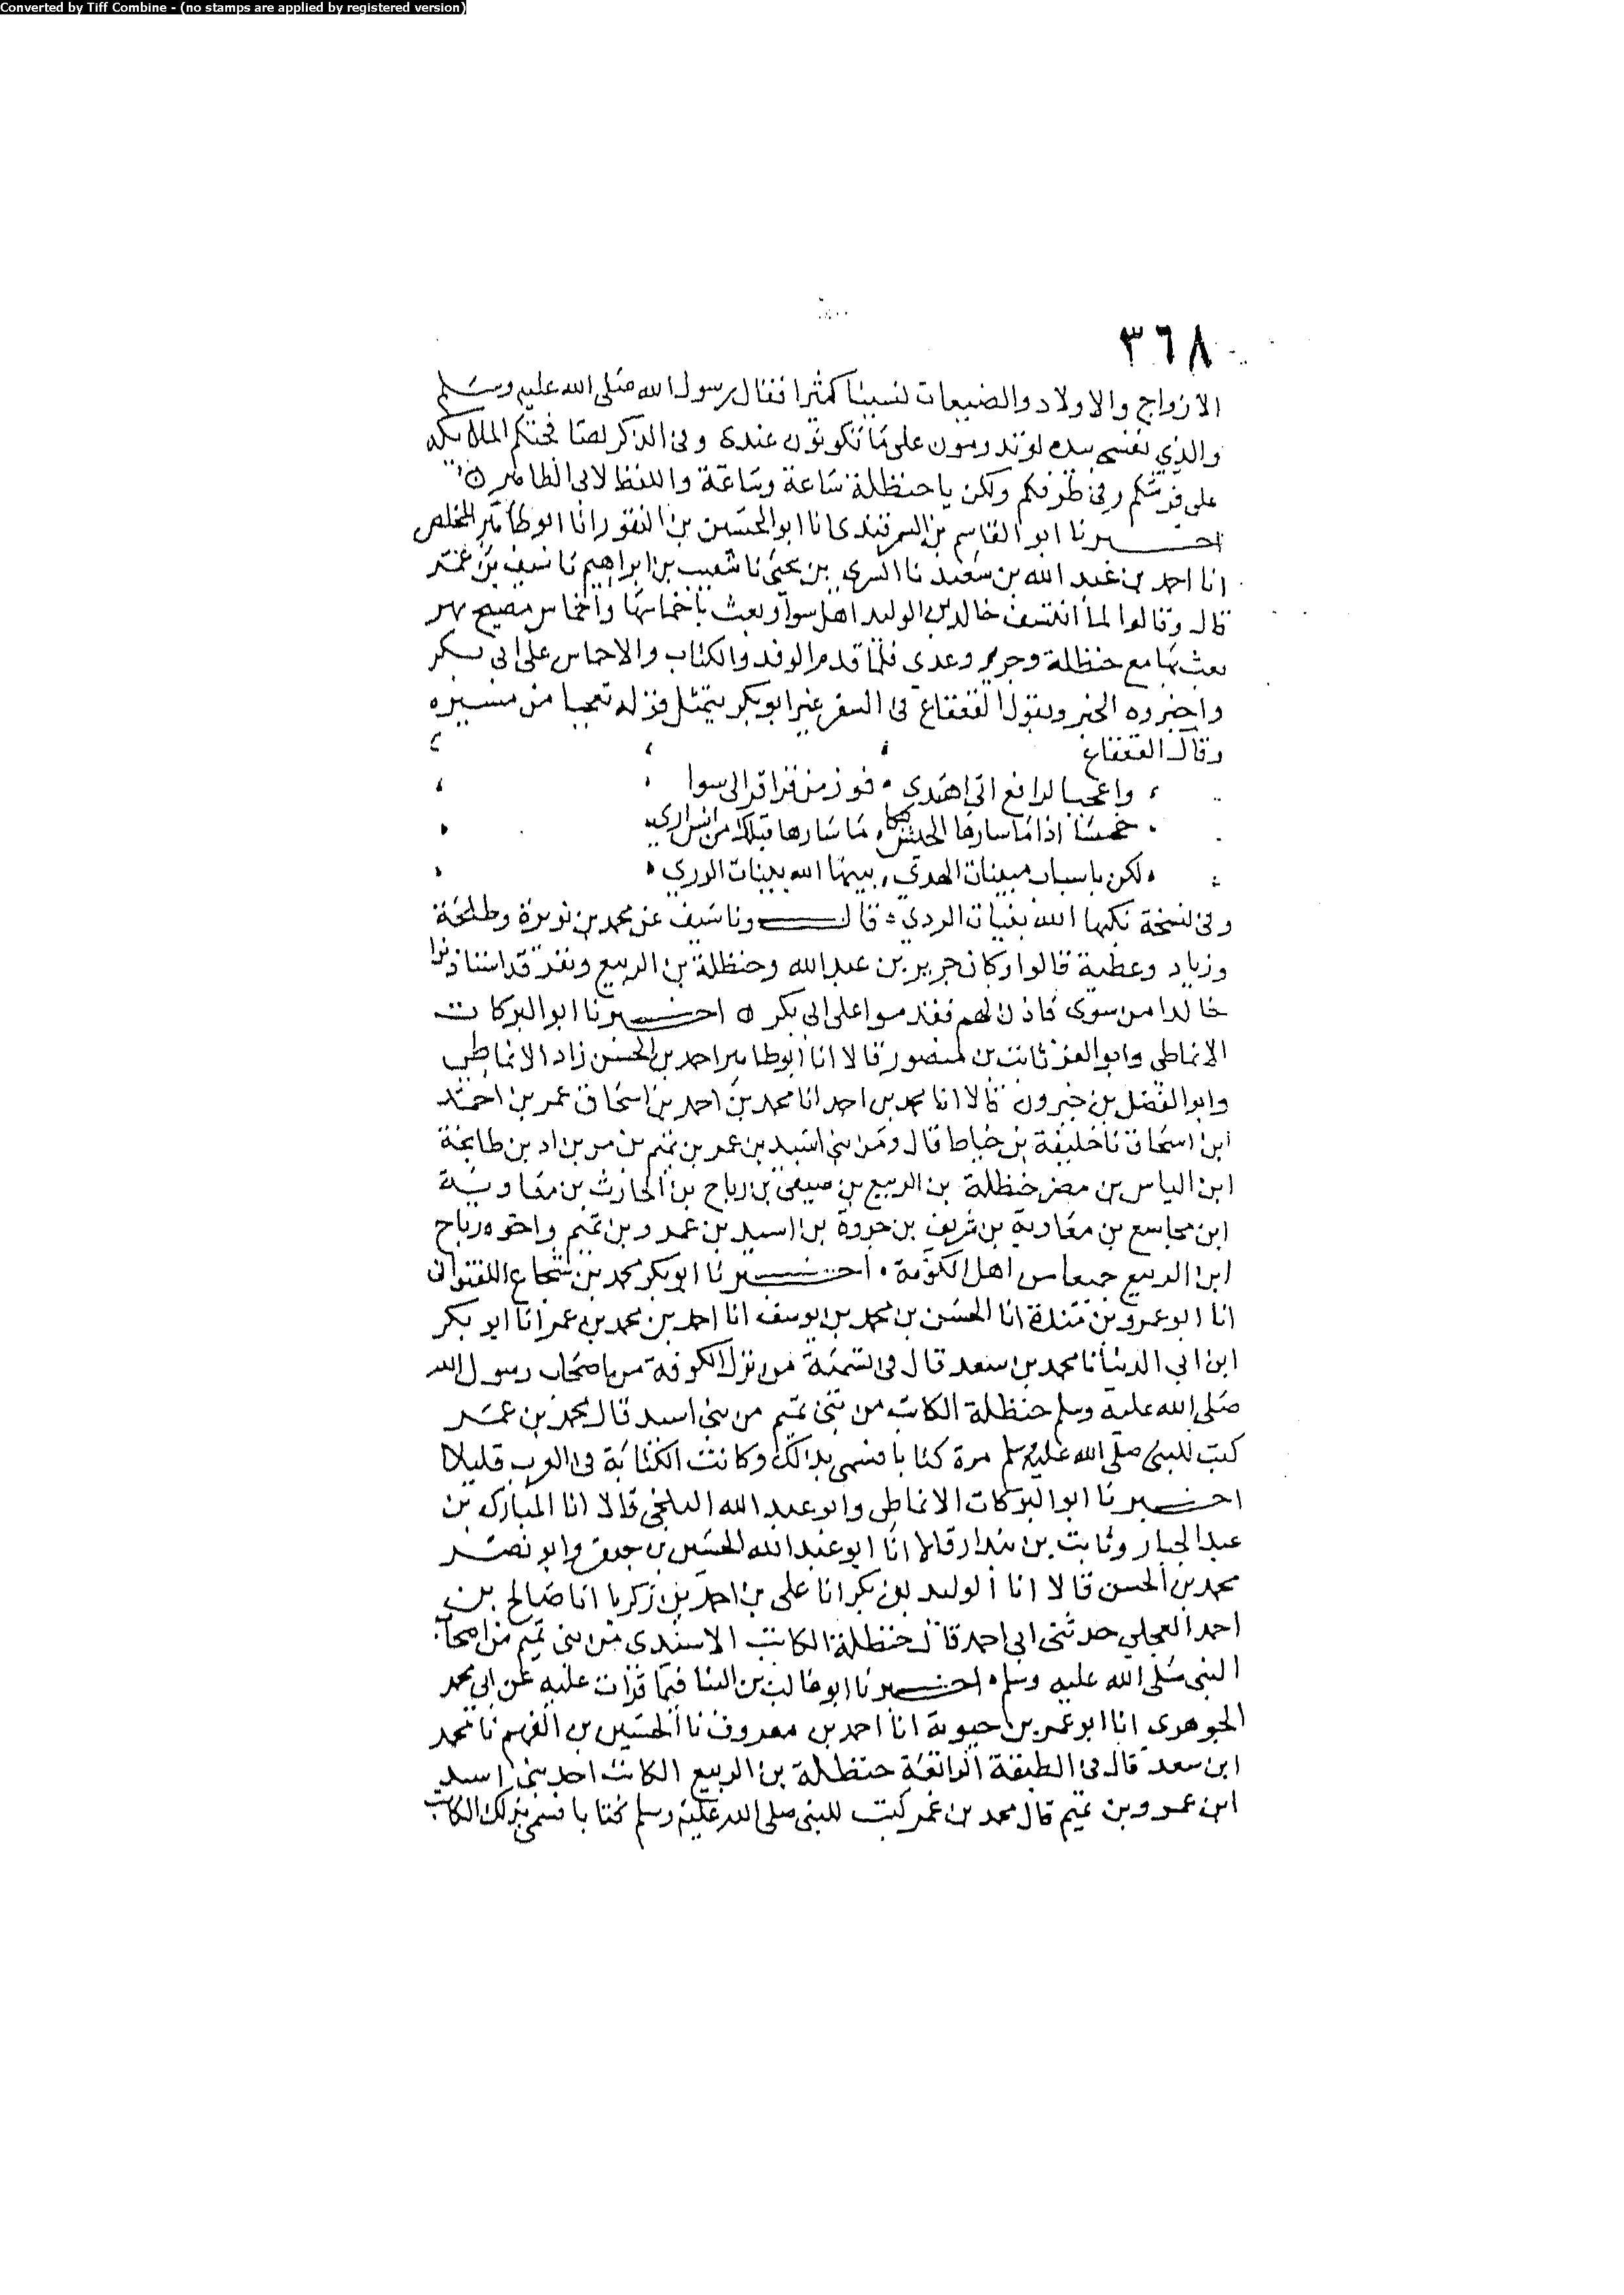 Converted by Tiff Combine - (no stamps are applied by registered version)
٣٦٨
الازواج والاولاد والضيعات نسينا كثيرا فقال رسول الله صلى الله عليه وسلم
والذي نفسي بيده لو تدومون على ما تكونون عندى وفى الذكر لصافحتكم الملائكه
على فرشكم وفى طرقكم ولكن يا حنظلة ساعة وساعة واللفظ لابى الطاهر ه
اخبرنا ابو القاسم بن السمرقندى انا ابو الحسين بن النقور انا ابو طاهر المخلص
انا احمد بن عبد الله بن سعيد نا السرى بن يحيى نا شعيب بن ابراهيم نا سيف بن عمر
قال وقالوا لما خالد بن الوليد اهل سوا وبعث باخماسها واخماس مصيخ بهر
بعث بها مع حنظلة وجرير وعدى فلما قدم الوفد والكتاب والاخماس على ابى بكر
واخبروه الخبر وبقول القعقاع فى السفر ابو بكر يتمثل تعجبا من مسيره
وقال القعقاع
واعجبا لرافع انى اهتدى فوز من قراقر الى سوا
خمسا اذا ما سارها الجيش بكا ما سارها قبلك من انس ارى
لكن باسباب مبينات الهدى الله الردي
وفى نسخة نكبها الله الردي قال ونا سيف عن محمد بن نويرة وطلحة
وزياد وعطية قالوا وكان جرير بن عبد الله وحنظلة بن الربيع ونفر قد استاذنوا
خالدا من سوى فاذن لهم فقدموا على ابى بكر ه اخبرنا ابو البركات
الانماطى وابو العز ثابت بن منصور قالا انا ابو طاهر احمد بن الحسن زاد الانماطي
وابو الفضل بن خيرون قالا انا محمد بن احمد انا محمد بن احمد بن اسحاق عمر بن احمد
ابن اسحاق نا خليفة بن خياط قال ومن بنى اسيد بن عمر بن تميم بن مر بن اد بن طابخة
ابن الياس بن مضر حنظلة بن الربيع بن صيفى بن رباح بن الحارث بن معاوية
ابن مجاسع بن معاوية بن شريف بن جروة بن اسيد بن عمرو بن تميم واخوه رباح
ابن الربيع جميعا من اهل الكوفة اخبرنا ابو بكر محمد بن شجاع اللفتوانى
انا ابو عمرو بن مندة انا الحسن بن محمد بن يوسف انا احمد بن محمد بن عمر انا ابو بكر
ابن ابي الدنيا نا محمد بن سعد قال فى تسمية من نزل الكوفة من اصحاب رسول الله
صلى الله عليه وسلم حنظلة الكاتب من بنى تميم من بنى اسيد قال محمد بن عمر
كتب للنبى صلى الله عليه وسلم مرة كتابا فسمى بذالك وكانت الكتابة فى العرب قليلا
اخبرنا ابو البركات الانماطى وابو عبد الله البلخى قالا انا المبارك بن
عبد الجبار وثابت بن بندار قالا انا ابو عبد الله الحسين بن جعفر وابو نصر
محمد بن الحسن قالا انا الوليد بن بكر انا على بن احمد بن زكريا انا صالح بن
احمد العجلي حدثنى ابى احمد قال حنظلة الكاتب الاسيدى من بنى تميم من اصحاب
النبى صلى الله عليه وسلم اخبرنا ابو غالب بن البنا فيما قرات عليه عن ابي محمد
الجوهرى انا ابو عمر بن حيوية انا احمد بن معروف نا الحسين بن الفهم نا محمد
ابن سعد قال فى الطبقة الرابعة حنظلة بن الربيع الكاتب احد بنى اسيد
ابن عمرو بن تميم قال محمد بن عمر كتب للنبى صلى الله عليه وسلم كتابا فسمى بذلك الكاتب